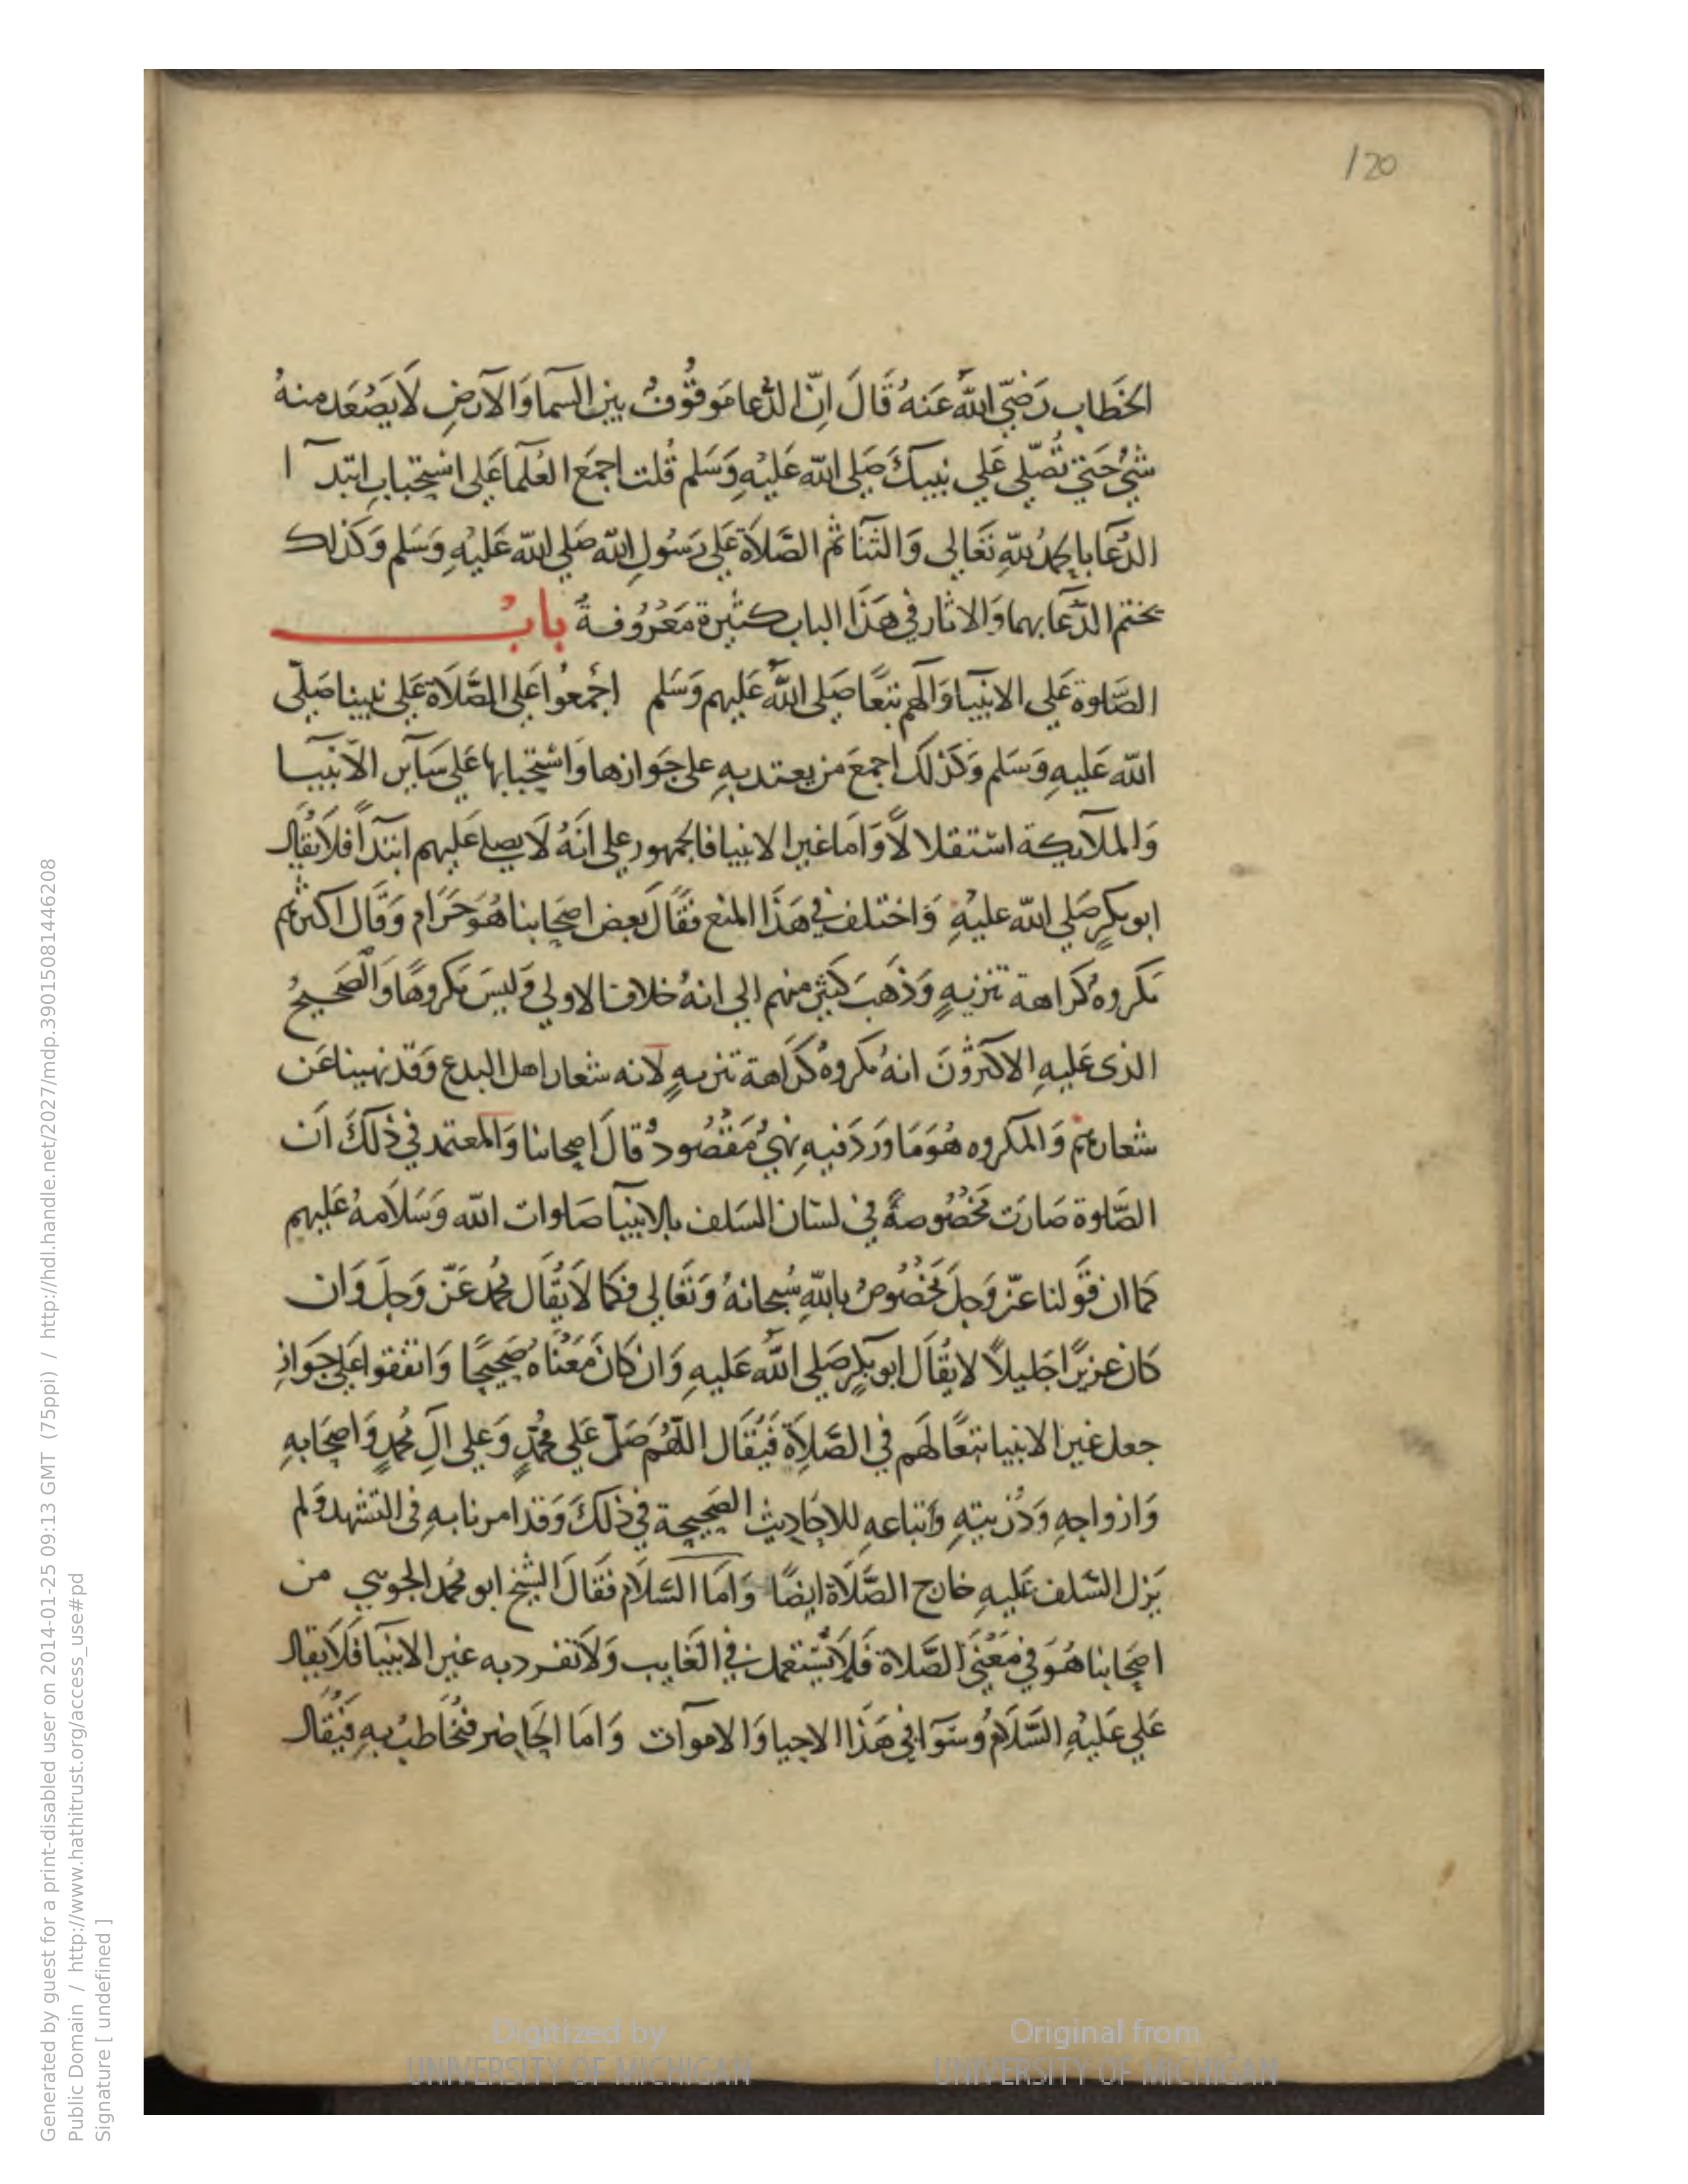 120
الخَطاب رَضيّ اللهُ عَنهُ قَالَ اِنّ الدُّعا مَوقُوُفٌ بين السمآ وَالآرضِ لَا يَصْعَد منهُ
شيُ حَتي تُصَلي عَلي نبيكَ صَلي الله عَليْهِ وَسَلم قُلت اجمَع العُلمآ عَلي استِحْبابِ ابتدآ ا
الدُعَا بالحمدُ للهِ تعَالي وَالثنآ ثم الصَلاَة عَلي رَسُولِ الله صَلي الله عَليْهِ وَسَلم وَكَذلك
يختم الدّعَآ بهما وَالاثار في هَذَا الباب كثيرة مَعْرُوفةُ بابُ
الصَّلوة عَلي الانبيآ وَالهم تبَعًا صَلي اللهُ عَليهم وَسَلم اجْمعوُا عَلي الصَّلاَة عَلي نبينا صَلّي
الله عَليهِ وَسَلم وَكَذلكَ اجمعَ من يعتد بهِ علي جَوازها وَاسْتِحْبابها عَلي سَآيرِ الآنبيَآ
وَالملآيكة اسْتقلالاً وَامَا غير الانبيا فالجمهور علي انَهُ لَا يصلي عَليهم ابتدآً فلاَ يقَال
ابو بكرٍ صَلي الله عليْهِ وَاختلف في هَذَا المنع فقَالَ بَعض اصحَابنا هُوَ حَرَام وَقَال اكثرهم
مَكروهُ كَراهة تنزيهٍ وَذَهَبَ كَثير منهم الي انهُ خلاف الاولي وَليسَ مَكروهًا وَالصَحيحُ
الذى عَليهِ الاكثرُونَ انهُ مكروهُ كَرَاهة تنزيهٍ لانه شعار اهل البدع وَقَد نهينا عَن
شعارهم وَالمكروه هُوَ مَا وَرَدَ فيهِ نهيُ مَقْصُودُ قالَ اصحابنا وَالمعتمد في ذلكَ اَن
الصَّلوة صَارَت مَخصُوصةً في لسَان السَلف بالانبيآ صَلوات الله وَسَلَامهُ عَليهم
كمَا ان قَولنا عزّ وَجلَ مَخصُوصُ بالله سُبحانهُ وَتعَالي فكما لَا يُقَال محُمد عَزّ وَجلَ وَان
كان عزيزًا جَليلاً لا يقَال ابو بكرٍ صَلي اللهُ عَليهِ وَان كانَ مَعْناهُ صَحيحًا وَاتفقوا عَلي جَوازِ
جعل غير الانبيا تبعًا لهَم في الصَّلاَة فَيُقَال اللهُم صَلّ عَلي محُمدٍ وَعلي آلِ محُمدٍ وَاصحَابهِ
وَازواجهِ وَذُريتهِ وَاتباعهِ للاحَاديث الصَحيحة في ذلكَ وَقَد امرنا بهِ في التشهد وَلم
يَزل السَلف عَليهِ خارج الصَّلَاة ايضًا وَامَا السَلَام فقَالَ الشيخ ابو محُمد الجويني من
اصحَابنا هُوَ في مَعْنيَ الصَّلاة فَلاَ يُسْتعمل في الغَايب وَلَا تفرد به غير الانبيآ فَلاَ يقال
عَلي عَليْهِ السَّلَامُ وسَوَآ في هَذَا الاحيا وَالاموآت وَامَا الحَاضر فيخَاطبُ بهِ فَيُقَال